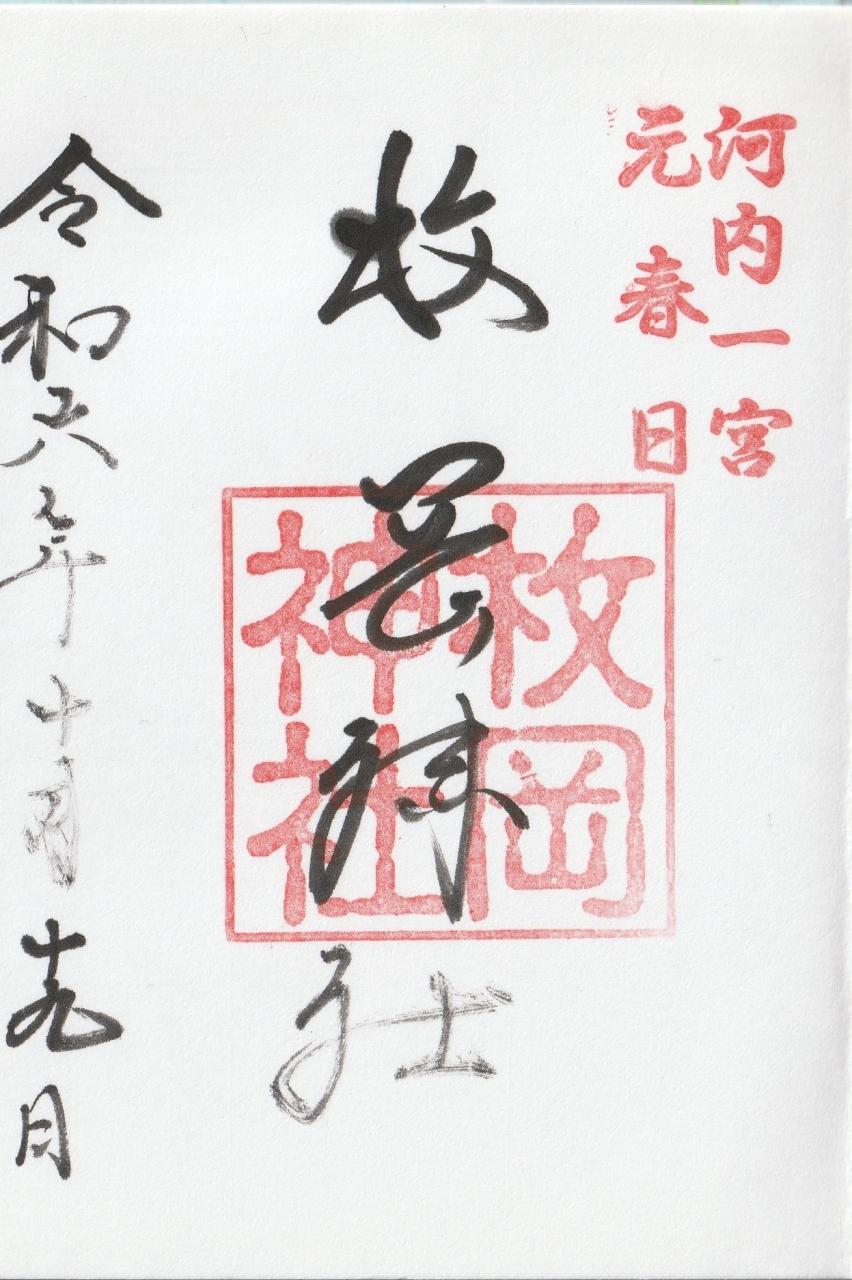 河内一宮
元春日
枚岡神社
枚岡神社
令和六年十月十九日